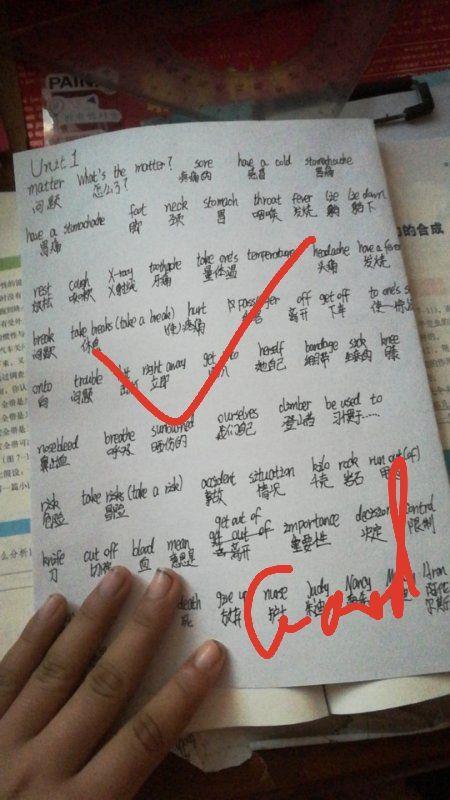 PAIN
Unit 1
matter What's the matter? sore have a cold stomachache
问题 怎么了? 疼痛的 感冒 胃痛
have a stomachache foot neck stomach throat fever lie lie down
胃痛 脚 颈 胃 咽喉 发烧 躺 躺下
rest cough X-ray toothache take one's temperature headache have a fever
放松 咳嗽 X射线 牙痛 量体温 头痛 发烧
break take breaks (take a break) hurt passenger off get off to one's
问题 休息 (使)疼痛 离开 下车
onto trouble hit right away get into herself bandage sick knee
向 问题 立即 她自己 绷带 生病的 膝
nosebleed breathe sunburned ourselves climber be used to
鼻出血 呼吸 晒伤的 我们自己 登山者 习惯于……
risk take risks (take a risk) accident situation kilo rock run out (of)
危险 冒险 事故 情况 千克 岩石
knife cut off blood mean get out of importance decision control
刀 切除 血 意思是 离开 重要性 决定 限制
death give up nurse Judy Nancy
死 放弃 护士 朱迪
Good
的合成